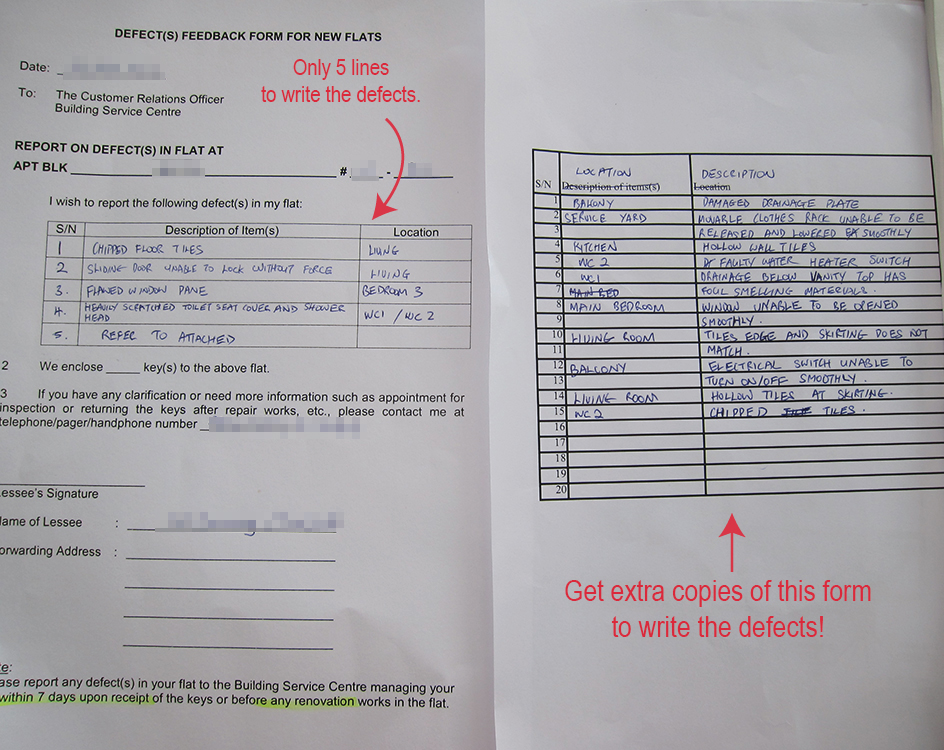 DEFECT(S) FEEDBACK FORM FOR NEW FLATS
Date:
Only 5 lines
to write the defects.
To: The Customer Relations Officer
Building Service Centre
REPORT ON DEFECT(S) IN FLAT AT
APT BLK # -
I wish to report the following defect(s) in my flat:
S/N Description of Item(s) Location
1 CHIPPED FLOOR TILES LIVING
2 SLIDING DOOR UNABLE TO LOCK WITHOUT FORCE LIVING
3. FLAWED WINDOW PANE BEDROOM 3
4. HEAVILY SCRATCHED TOILET SEAT COVER AND SHOWER
HEAD WC1 / WC 2
5. REFER TO ATTACHED
2 We enclose _____ key(s) to the above flat.
3 If you have any clarification or need more information such as appointment for
inspection or returning the keys after repair works, etc., please contact me at
telephone/pager/handphone number
essee's Signature
ame of Lessee :
orwarding Address :
te:
ase report any defect(s) in your flat to the Building Service Centre managing your
within 7 days upon receipt of the keys or before any renovation works in the flat.
LOCATION DESCRIPTION
S/N Description of items(s) Location
1 BALKONY DAMAGED DRAINAGE PLATE
2 SERVICE YARD MOVABLE CLOTHES RACK UNABLE TO BE
3 RELEASED AND LOWERED SMOOTHLY
4 KITCHEN HOLLOW WALL TILES
5 WC 2 FAULTY WATER HEATER SWITCH
6 WC1 DRAINAGE BELOW VANITY TOP HAS
7 MAIN BED FOUL SMELLING MATERIALS.
8 MAIN BEDROOM WINDOW UNABLE TO BE OPENED
9 SMOOTHLY.
10 LIVING ROOM TILES EDGE AND SKIRTING DOES NOT
11 MATCH.
12 BALCONY ELECTRICAL SWITCH UNABLE TO
13 TURN ON/OFF SMOOTHLY.
14 LIVING ROOM HOLLOW TILES AT SKIRTING.
15 WC 2 CHIPPED TILES.
16
17
18
19
20
Get extra copies of this form
to write the defects!